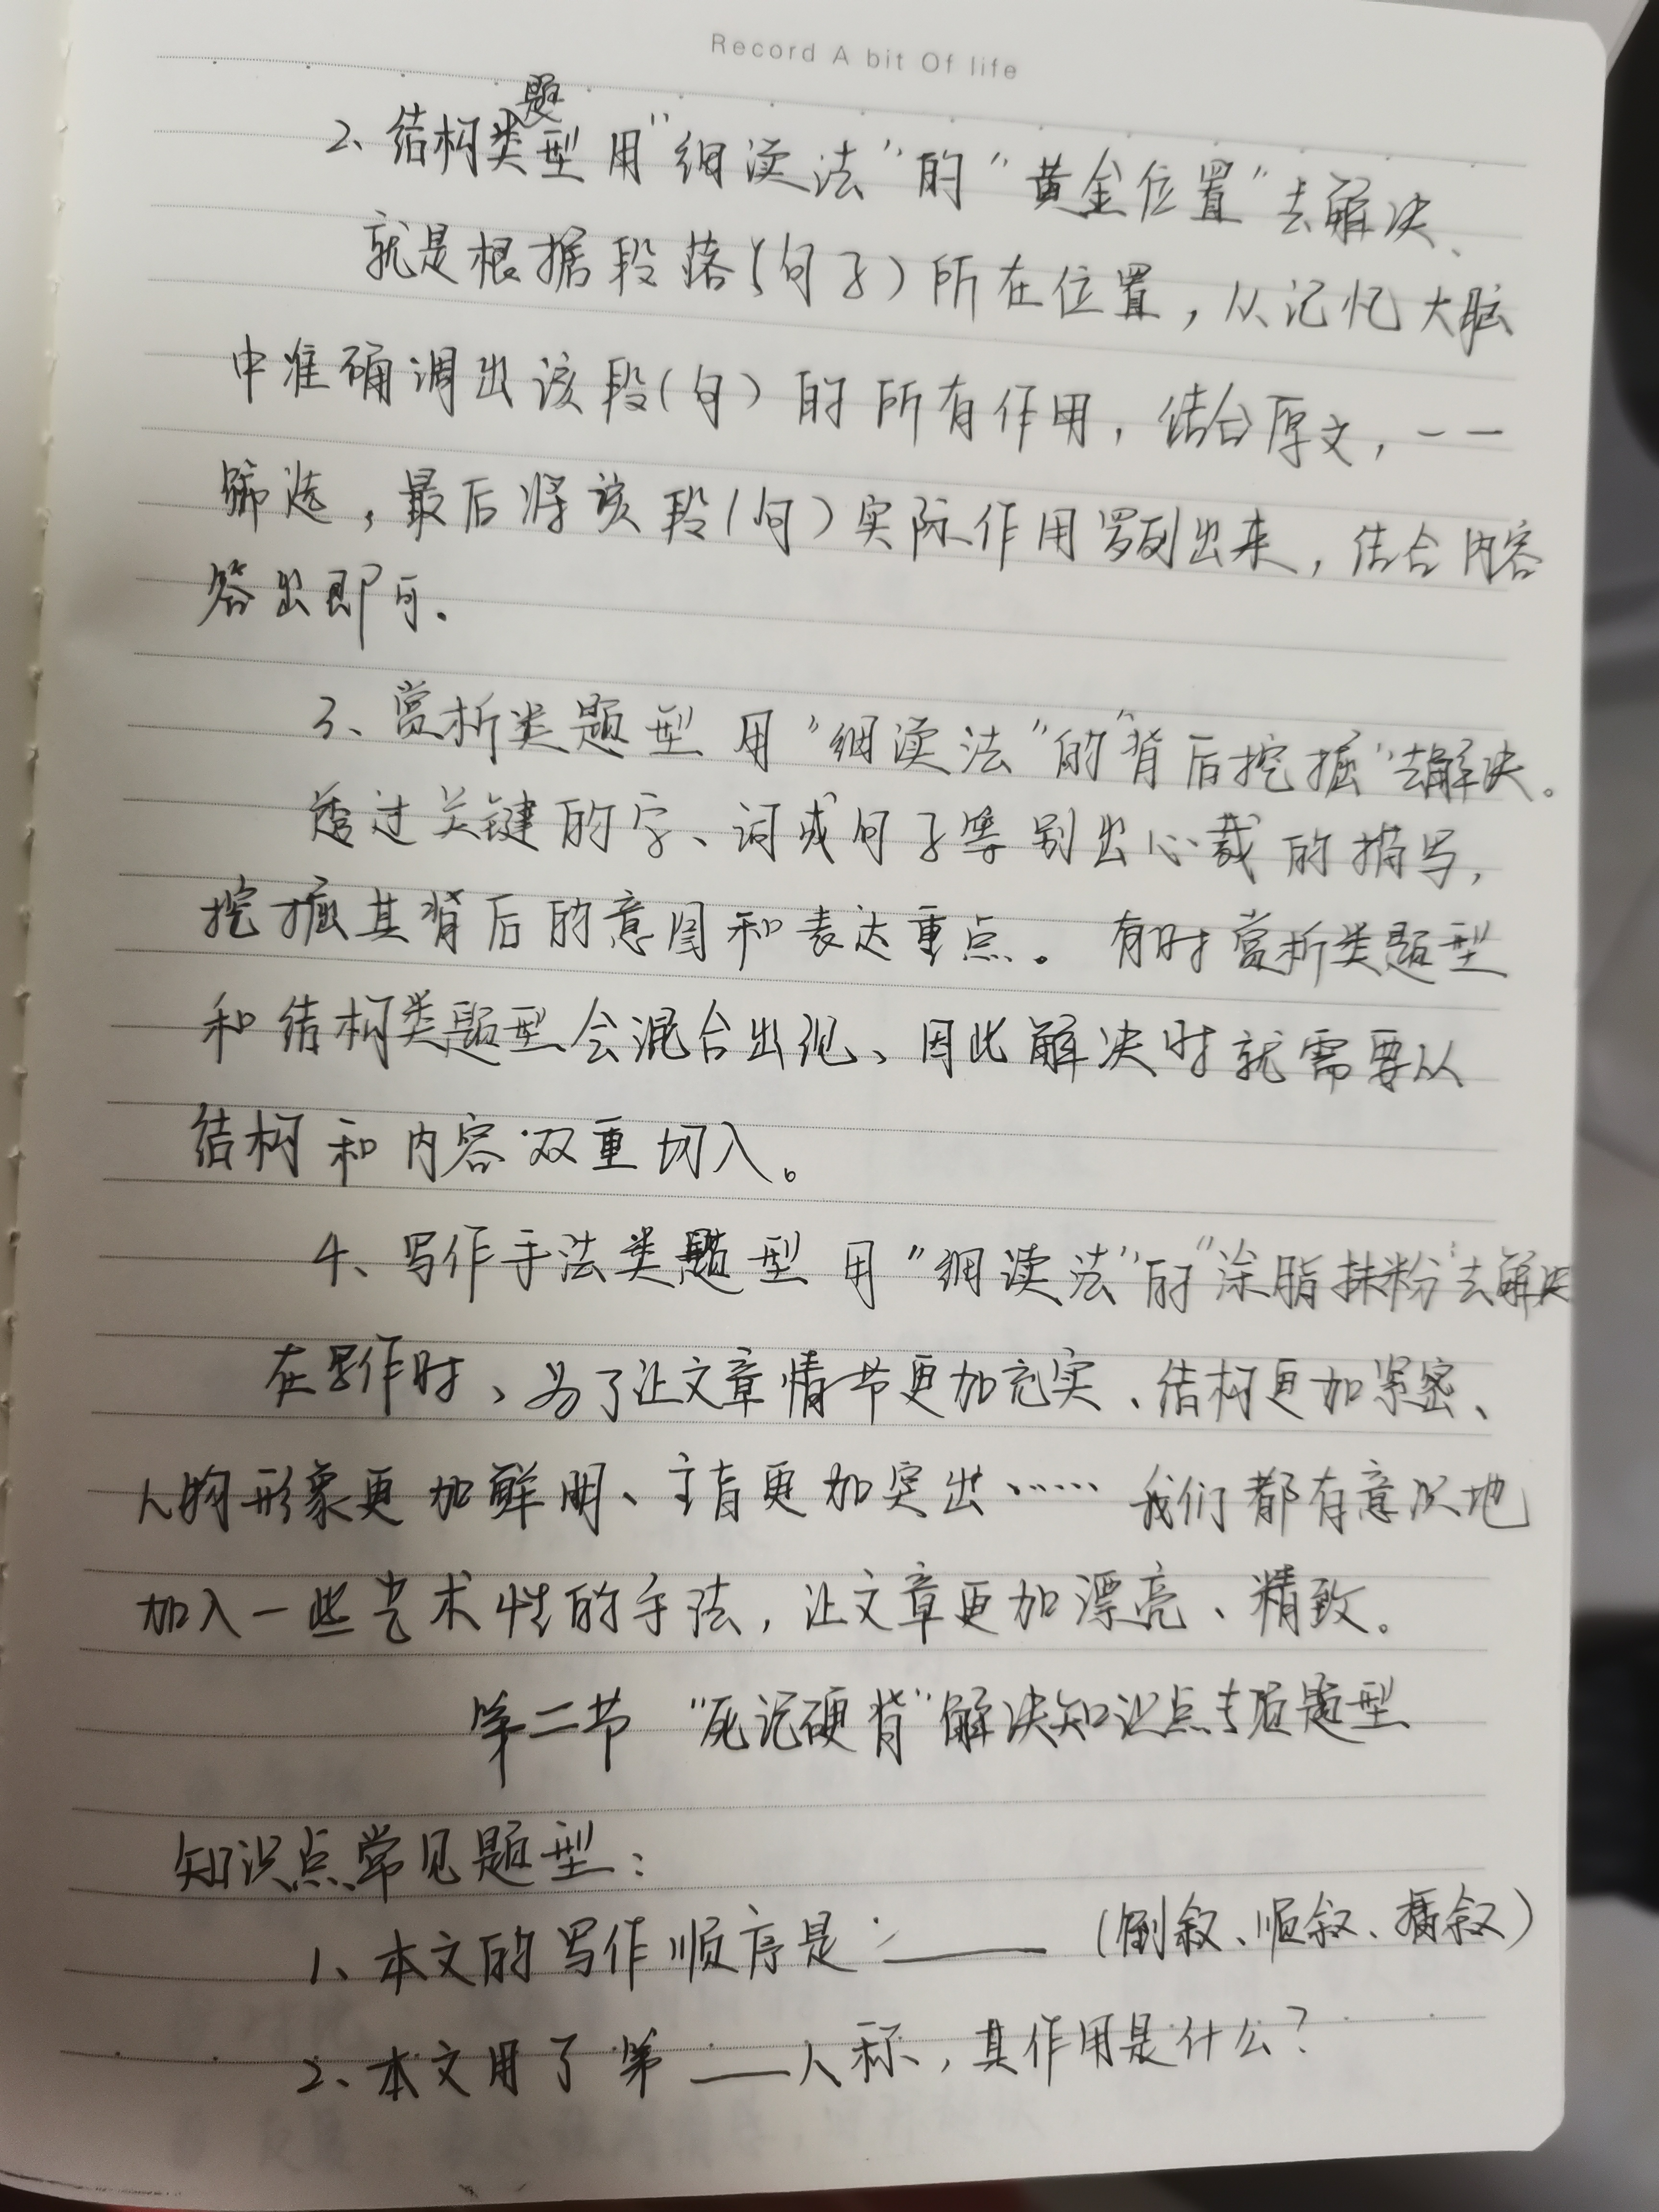 Record A bit Of life
2、结构类题型用“细读法”的“黄金位置”去解决、
就是根据段落(句子)所在位置，从记忆大脑
中准确调出该段(句)的所有作用，结合原文，一一
筛选，最后将该段(句)实际作用罗列出来，结合内容
答出即可.
3、赏析类题型 用“细读法”的“背后挖掘”去解决。
透过关键的字、词或句子等别出心裁的描写，
挖掘其背后的意图和表达重点。有时赏析类题型
和结构类题型会混合出现、因此解决时就需要从
结构和内容双重切入。
4、写作手法类题型 用“细读法”的“涂脂抹粉”去解决
在写作时、为了让文章情节更加充实、结构更加紧密、
人物形象更加鲜明、主旨更加突出……我们都有意识地
加入一些艺术性的手法，让文章更加漂亮、精致。
第二节 “死记硬背”解决知识点专项题型
知识点常见题型：
1、本文的写作顺序是：____ (倒叙、顺叙、插叙)
2、本文用了第____人称，其作用是什么？